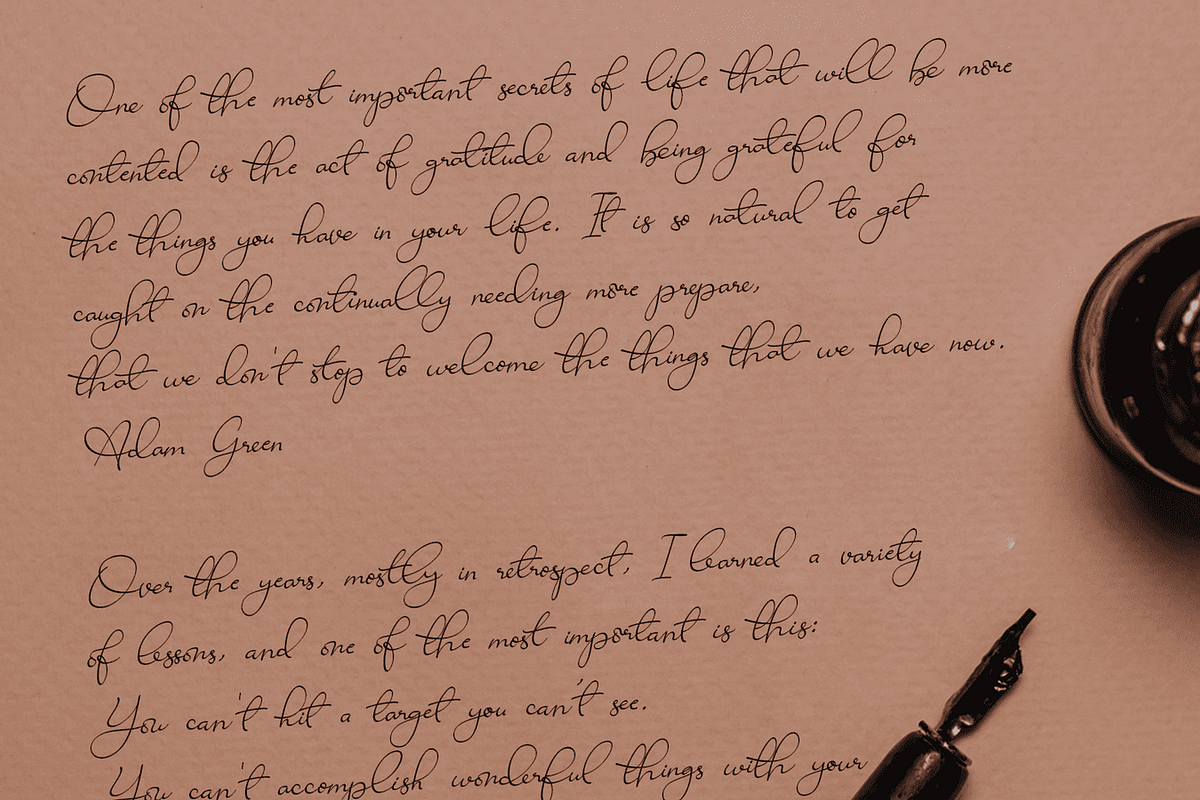 One of the most important secrets of life that will be more
contented is the act of gratitude and being grateful for
the things you have in your life. It is so natural to get
caught on the continually needing more prepare,
that we don't stop to welcome the things that we have now.
Adam Green
Over the years, mostly in retrospect, I learned a variety
of lessons, and one of the most important is this:
You can't hit a target you can't see.
You can't accomplish wonderful things with your